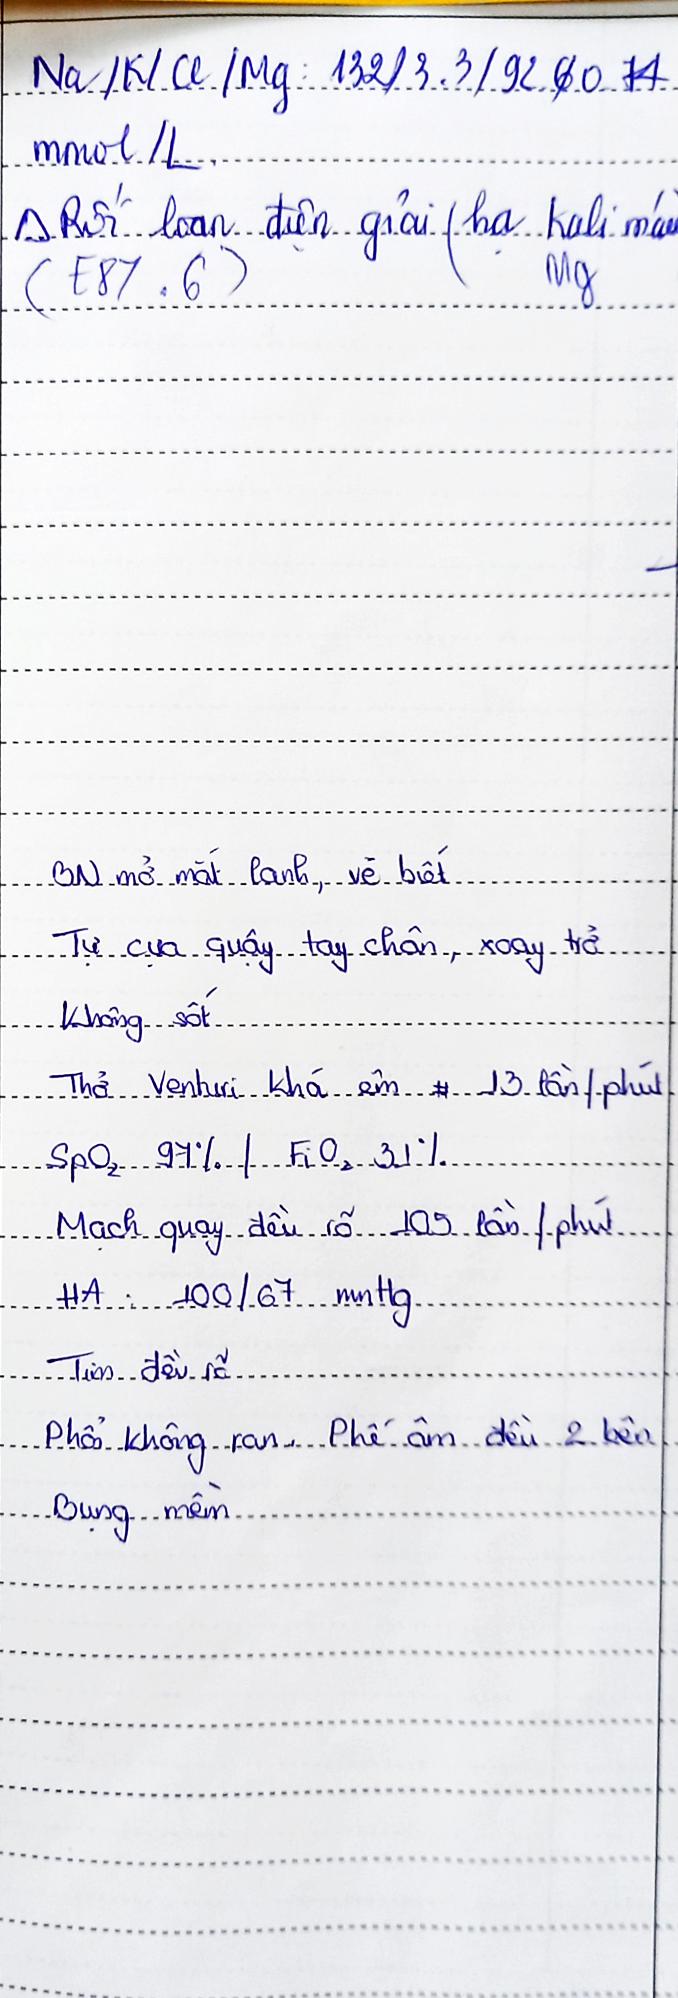 Na/K/Cl/Mg: 132/3.3/92/0.74
mmol/L.
Δ Rối loạn điện giải (hạ kali máu
Mg
(E87.6)
BN mở mắt lanh, vẻ biết
Tự cựa quậy tay chân, xoay trở
Không sốt
Thở Venturi khá êm # 13 lần/phút
SpO₂ 97% / FiO₂ 31%
Mạch quay đều rõ 105 lần/phút
HA: 100/67 mmHg
Tim đều rõ
Phổi không ran. Phế âm đều 2 bên
Bụng mềm